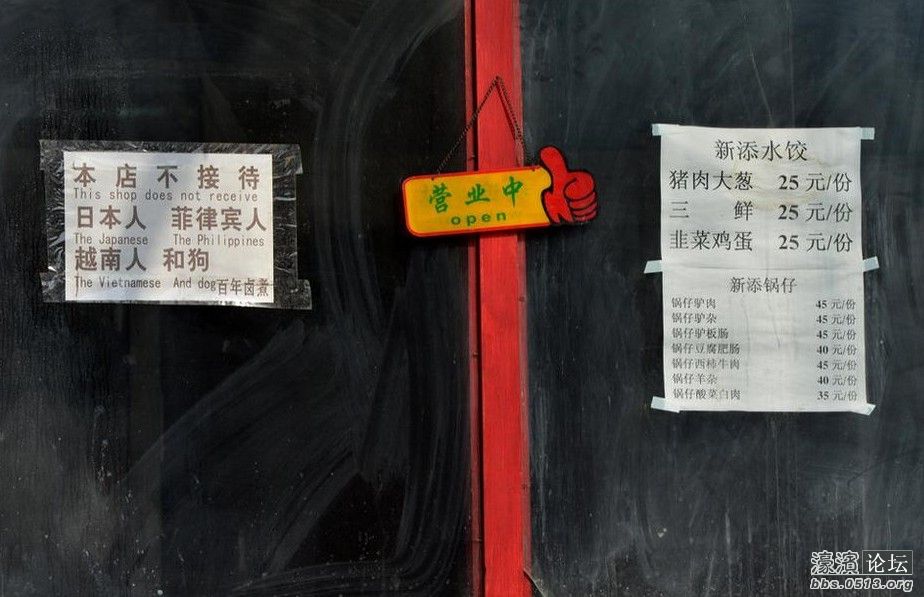 本店不接待
This shop does not receive
日本人 菲律宾人
The Japanese The Philippines
越南人 和狗
The Vietnamese And dog 百年卤煮
营业中
open
新添水饺
猪肉大葱 25 元/份
三 鲜 25 元/份
韭菜鸡蛋 25 元/份
新添锅仔
锅仔驴肉 45 元/份
锅仔驴杂 45 元/份
锅仔驴板肠 45 元/份
锅仔豆腐肥肠 40 元/份
锅仔西柿牛肉 45 元/份
锅仔羊杂 40 元/份
锅仔酸菜白肉 35 元/份
濠滨论坛
bbs.0513.org